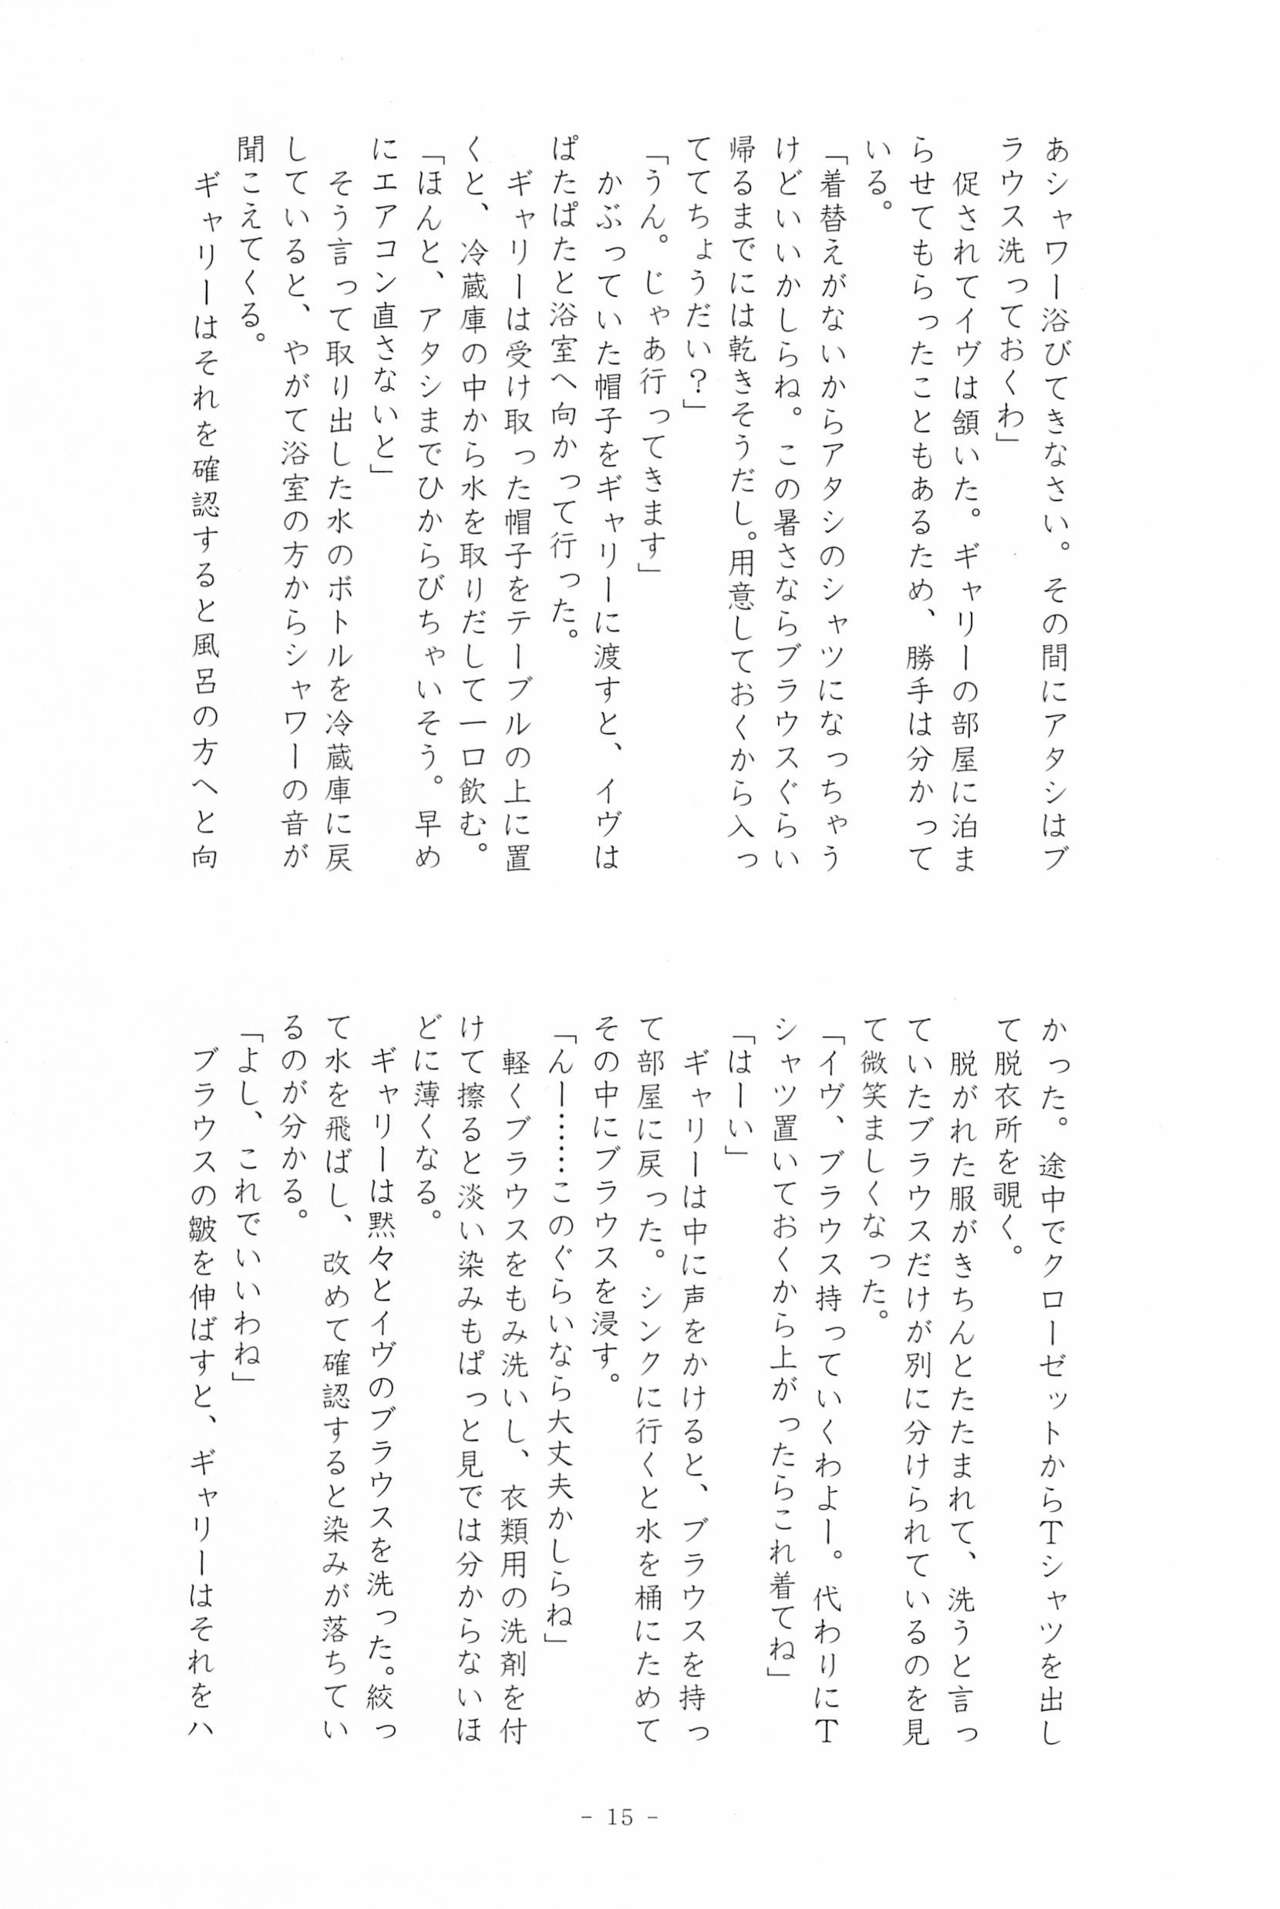 あシャワー浴びてきなさい。その間にアタシはブ
ラウス洗っておくわ」
促されてイヴは頷いた。ギャリーの部屋に泊ま
らせてもらったこともあるため、勝手は分かって
いる。
「着替えがないからアタシのシャツになっちゃう
けどいいかしらね。この暑さならブラウスぐらい
帰るまでには乾きそうだし。用意しておくから入っ
ててちょうだい？」
「うん。じゃあ行ってきます」
かぶっていた帽子をギャリーに渡すと、イヴは
ぱたぱたと浴室へ向かって行った。
ギャリーは受け取った帽子をテーブルの上に置
くと、冷蔵庫の中から水を取りだして一口飲む。
「ほんと、アタシまでひからびちゃいそう。早め
にエアコン直さないと」
そう言って取り出した水のボトルを冷蔵庫に戻
していると、やがて浴室の方からシャワーの音が
聞こえてくる。
ギャリーはそれを確認すると風呂の方へと向
かった。途中でクローゼットからＴシャツを出し
て脱衣所を覗く。
脱がれた服がきちんとたたまれて、洗うと言っ
ていたブラウスだけが別に分けられているのを見
て微笑ましくなった。
「イヴ、ブラウス持っていくわよー。代わりにＴ
シャツ置いておくから上がったらこれ着てね」
「はーい」
ギャリーは中に声をかけると、ブラウスを持っ
て部屋に戻った。シンクに行くと水を桶にためて
その中にブラウスを浸す。
「んー……このぐらいなら大丈夫かしらね」
軽くブラウスをもみ洗いし、衣類用の洗剤を付
けて擦ると淡い染みもぱっと見では分からないほ
どに薄くなる。
ギャリーは黙々とイヴのブラウスを洗った。絞っ
て水を飛ばし、改めて確認すると染みが落ちてい
るのが分かる。
「よし、これでいいわね」
ブラウスの皺を伸ばすと、ギャリーはそれをハ
- 15 -